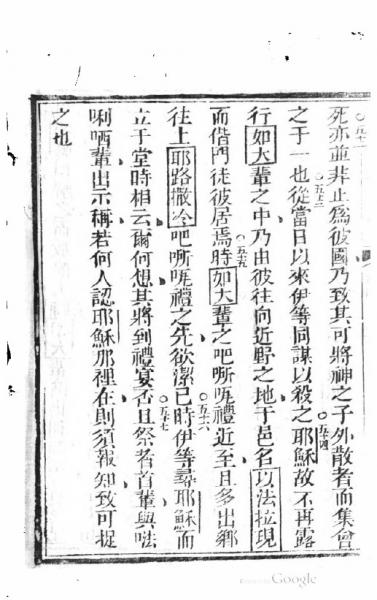 〇五十二
死亦並非止為彼國乃致其可將神之子外散者而集會
〇五十三
〇五十四
之于一也從當日以來伊等同謀以殺之耶穌故不再露
行如大輩之中乃由彼往向近野之地于邑名以法拉現
〇五十五
而偕門徒彼居焉時如大輩之吧禮近至且多出鄉
〇五十六
往上耶路撒冷吧禮之先欲潔已時伊等尋耶穌而
〇五十七
立于堂時相云爾何想其將到禮宴否且祭者首輩與
唎哂輩出示稱若何人認耶穌那裡在則須報知致可捉
之也
Google